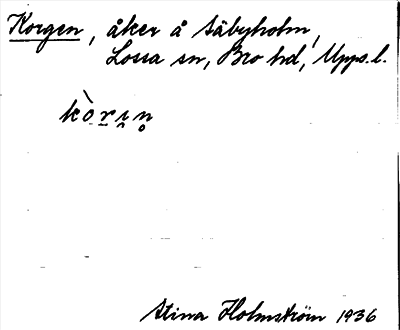 Korgen, åker å Säbyholm,
Lossa sn, Bro hd, Upps. l.
kò̱ṟı̯n̥
Stina Holmström 1936